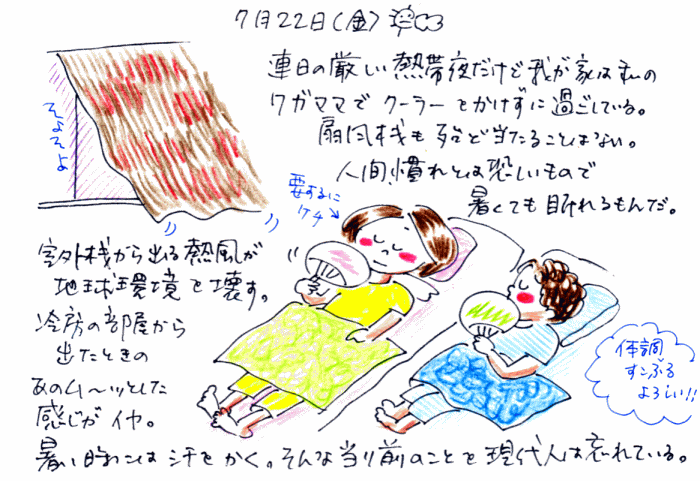 7月22日(金)
連日の厳しい熱帯夜だけど我が家は私の
ワガママでクーラーをかけずに過ごしている。
扇風機も殆ど当たることはない。
人間、慣れとは恐しいもので
暑くても眠れるもんだ。
そよそよ
要するに
ケチ
室外機から出る熱風が
地球環境を壊す。
冷房の部屋から
出たときの
あのム〜ッとした
感じがイヤ。
体調
すこぶる
よろしい!!
暑い時には汗をかく。そんな当り前のことを現代人は忘れている。